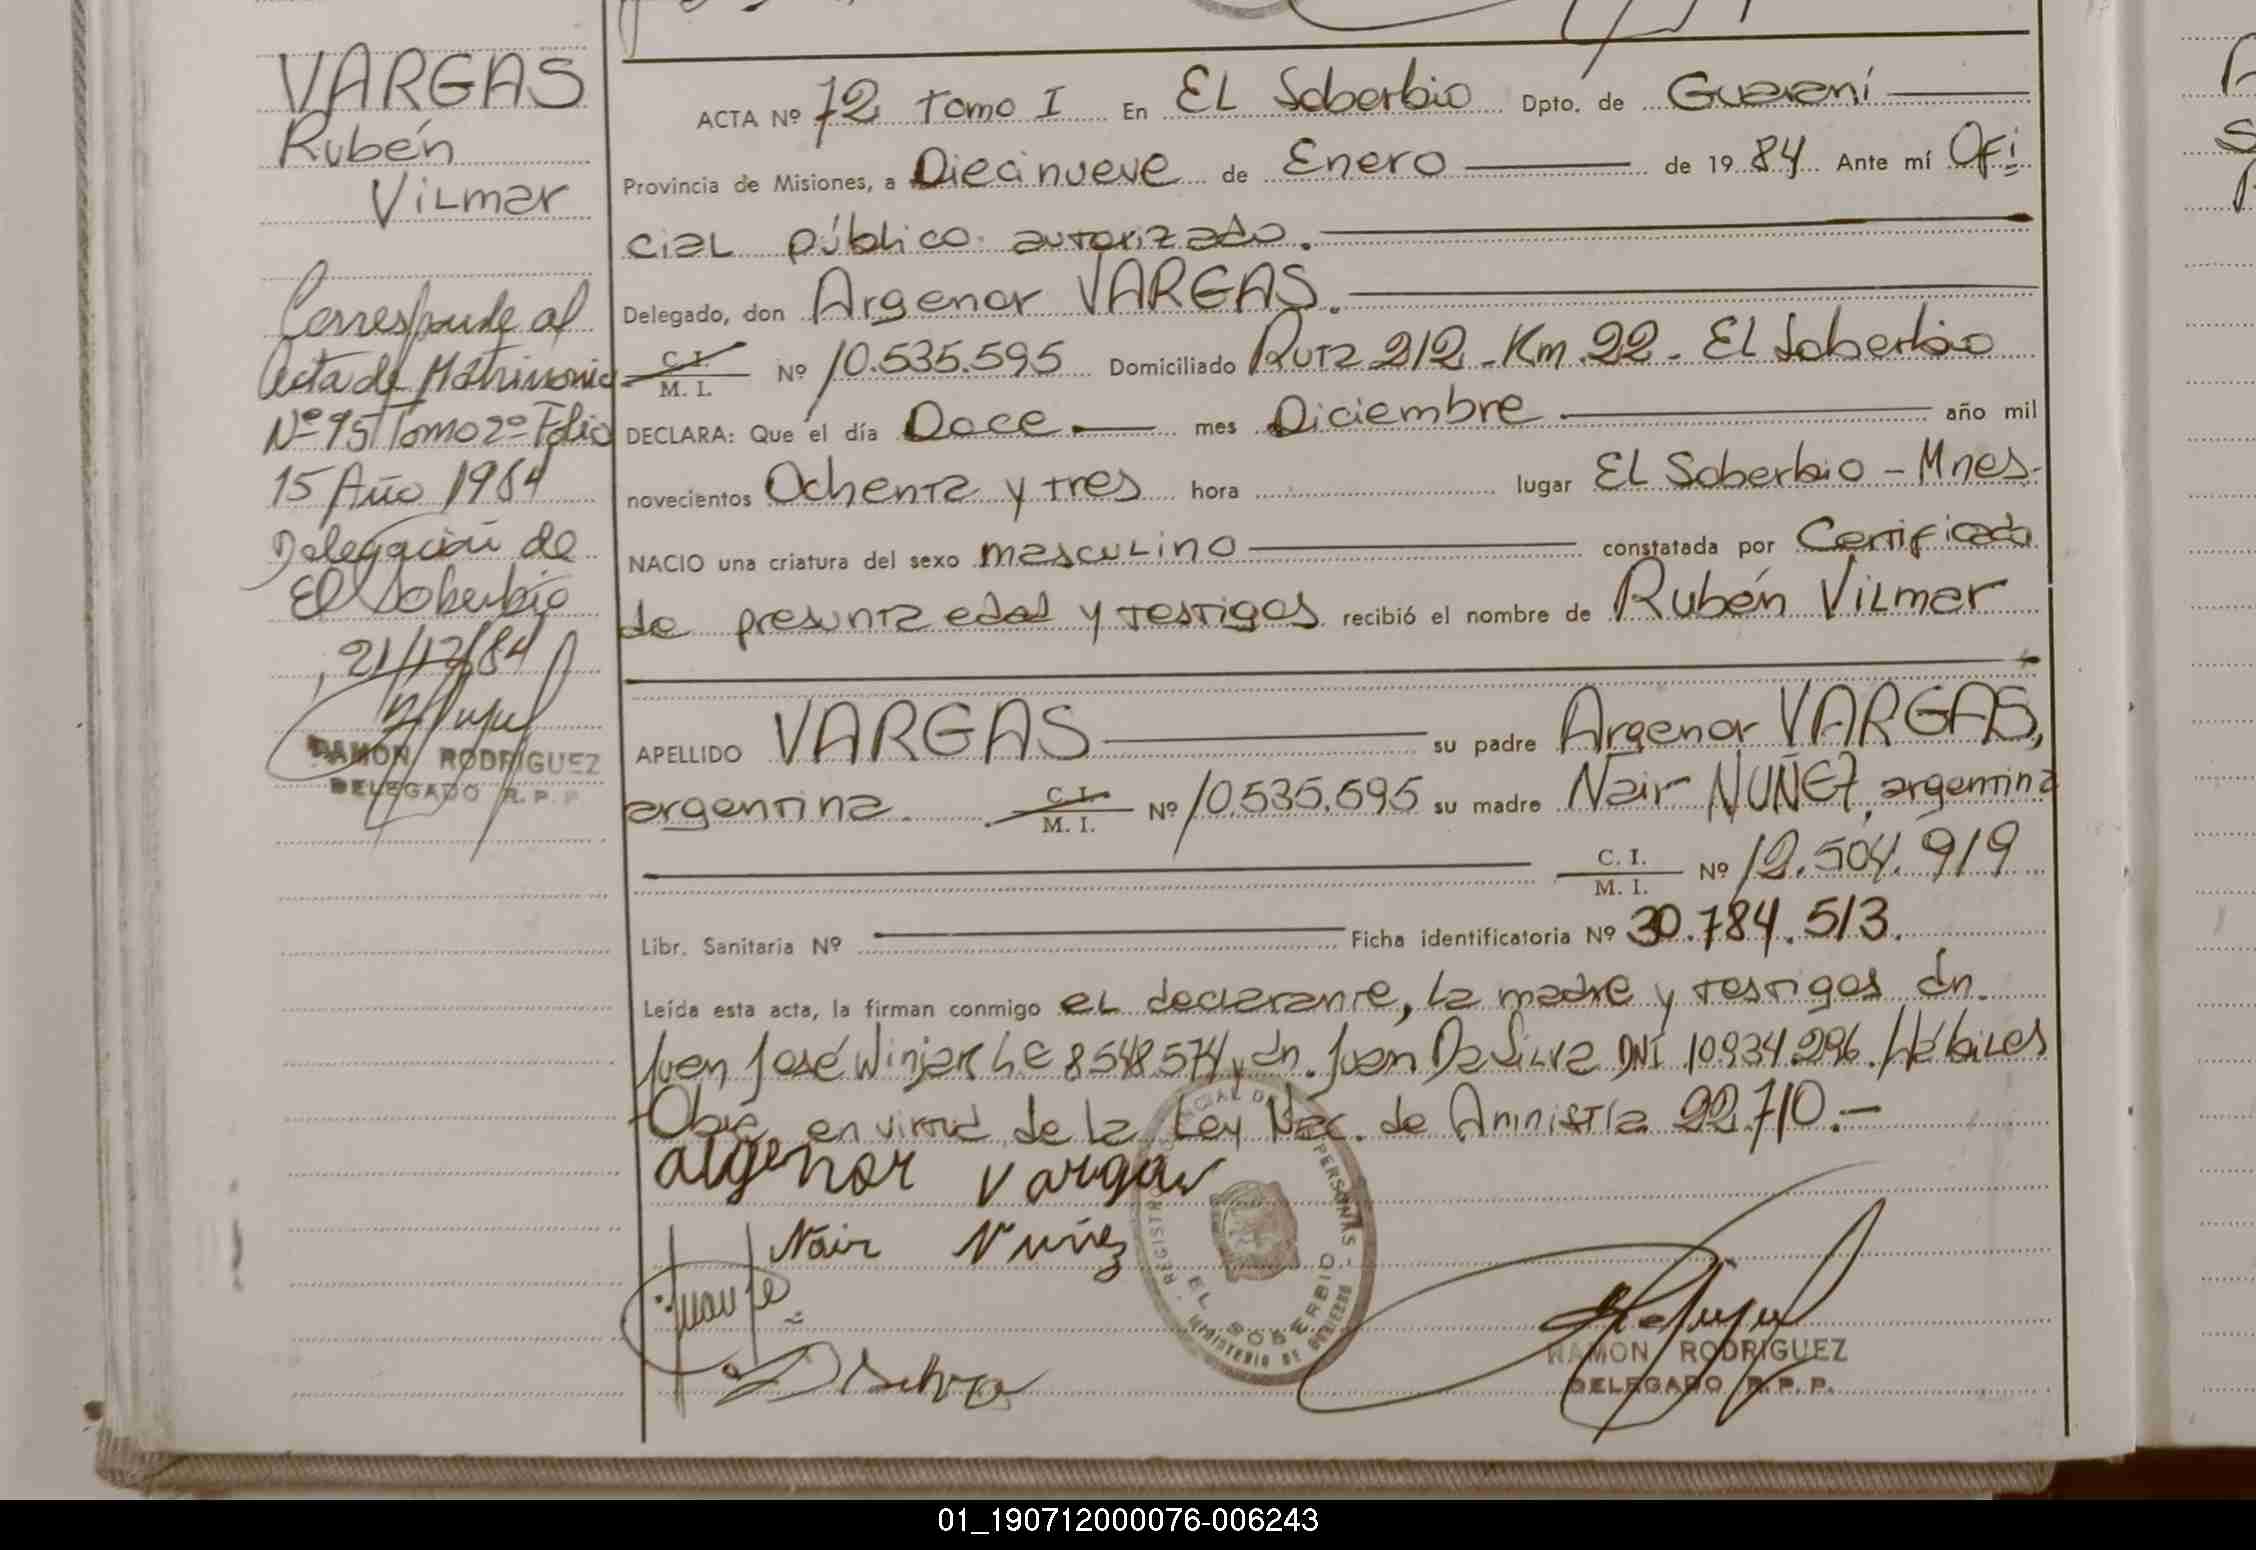 VARGAS
Rubén
Vilmar
Corresponde al
Acta de Matrimonio
Nº 95 Tomo 2º Folio
15 Año 1984
Delegación de
El Soberbio
21/12/84
RAMON RODRIGUEZ
DELEGADO R. P. P.
ACTA Nº 72 Tomo I En EL Soberbio Dpto. de Guaraní
Provincia de Misiones, a Diecinueve de Enero de 19 84 Ante mí Ofi
cial público autorizado.
Delegado, don Argenor VARGAS.
C. I.
M. I. Nº 10.535.595 Domiciliado Ruta 212 - Km. 22 - El Soberbio
DECLARA: Que el día Doce mes Diciembre año mil
novecientos Ochenta y tres hora lugar EL Soberbio - Mnes.
NACIO una criatura del sexo masculino constatada por Certificado
de presunta edad y testigos recibió el nombre de Rubén Vilmar
APELLIDO VARGAS su padre Argenor VARGAS,
argentina. C. I.
M. I. Nº 10.535.595 su madre Nair NUÑEZ, argentina
C. I.
M. I. Nº 12.504.919
Libr. Sanitaria Nº Ficha identificatoria Nº 30.784.513.
Leída esta acta, la firman conmigo el declarante, la madre y testigos dn.
Juan José Winjar LE 8548574 y dn. Juan Da Silva DNI 10934.296. Hábiles
en virtud de la Ley Nac. de Amnistía 22.710.-
algenor Vargas
Nair Nuñez
Da Silva
REGISTRO PROVINCIAL DE PERSONAS - MINISTERIO DE GOBIERNO
EL SOBERBIO
RAMON RODRIGUEZ
DELEGADO R. P. P.
01_190712000076-006243